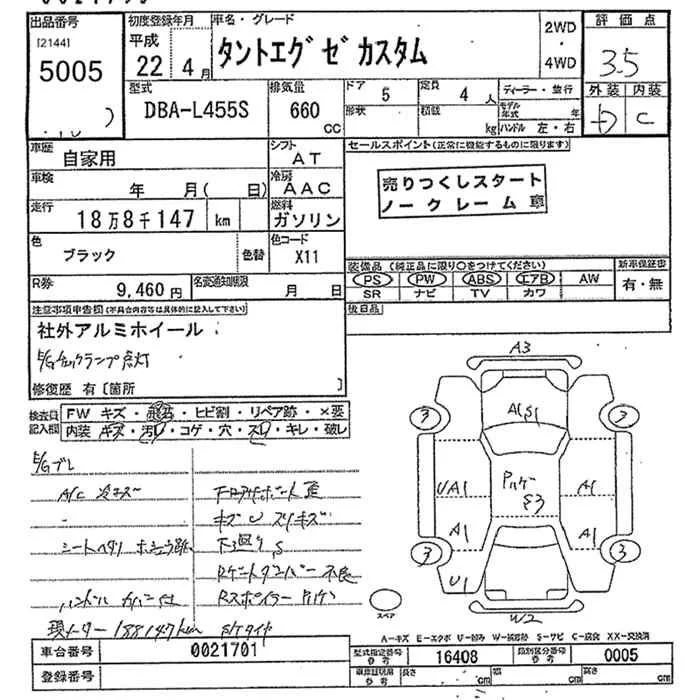 出品番号
[2144]
5005
初度登録年月
平成
22 4月
車名・グレード
タントエグゼカスタム
2WD
・
4WD
評価点
3.5
外装 内装
C
型式
DBA-L455S
排気量
660
CC
ドア
5
定員
4 人
形状
積載
kg
ディーラー・並行
モデル年式 年
ハンドル 左・右
車歴
自家用
シフト
AT
車検
年 月( 日)
冷房
AAC
走行
18万8千147 km
燃料
ガソリン
色
ブラック
色替
色コード
X11
R券
9,460円
名変通知期限
月 日
セールスポイント(正常に機能するものに限ります)
売りつくしスタート
ノークレーム車
装備品(純正品に限り○をつけてください)
PS PW ABS エアB AW
SR ナビ TV カワ
新車保証書
有・無
後日品
注意事項申告欄(不具合内容等は具体的に記入して下さい)
社外アルミホイール
E/Gチェックランプ点灯
修復歴 有〔箇所 〕
検査員記入欄
FW キズ・飛石・ヒビ割・リペア跡・×要
内装 キズ・汚レ・コゲ・穴・スレ・キレ・破レ
E/Gブレ
A/C 冷エズ
シートヘタリ
ハンドル
キズ U スリキズ
下廻り S
Rゲートダンパー不良
Rスポイラー
現メーター 188147km
A3
A1 S1
3
3
UA1
A1
A1
A1
3
3
U1
W2
スペア
A-キズ E-エクボ U-凹み W-補修跡 S-サビ C-腐食 XX-交換済
車台番号
0021701
登録番号
型式指定番号
参考
16408
類別区分番号
参考
0005
車庫証明用
参考
長さ cm
幅 cm
高さ cm